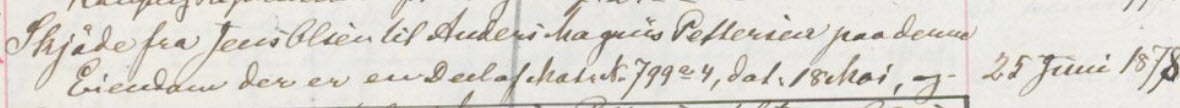 Skjøde fra Jens Olsen til Anders Magnus Pettersen paa denne
Eiendom der er en Deel af Matr. N. 799a4, dat. 18 Mai, og 25 Juni 1878